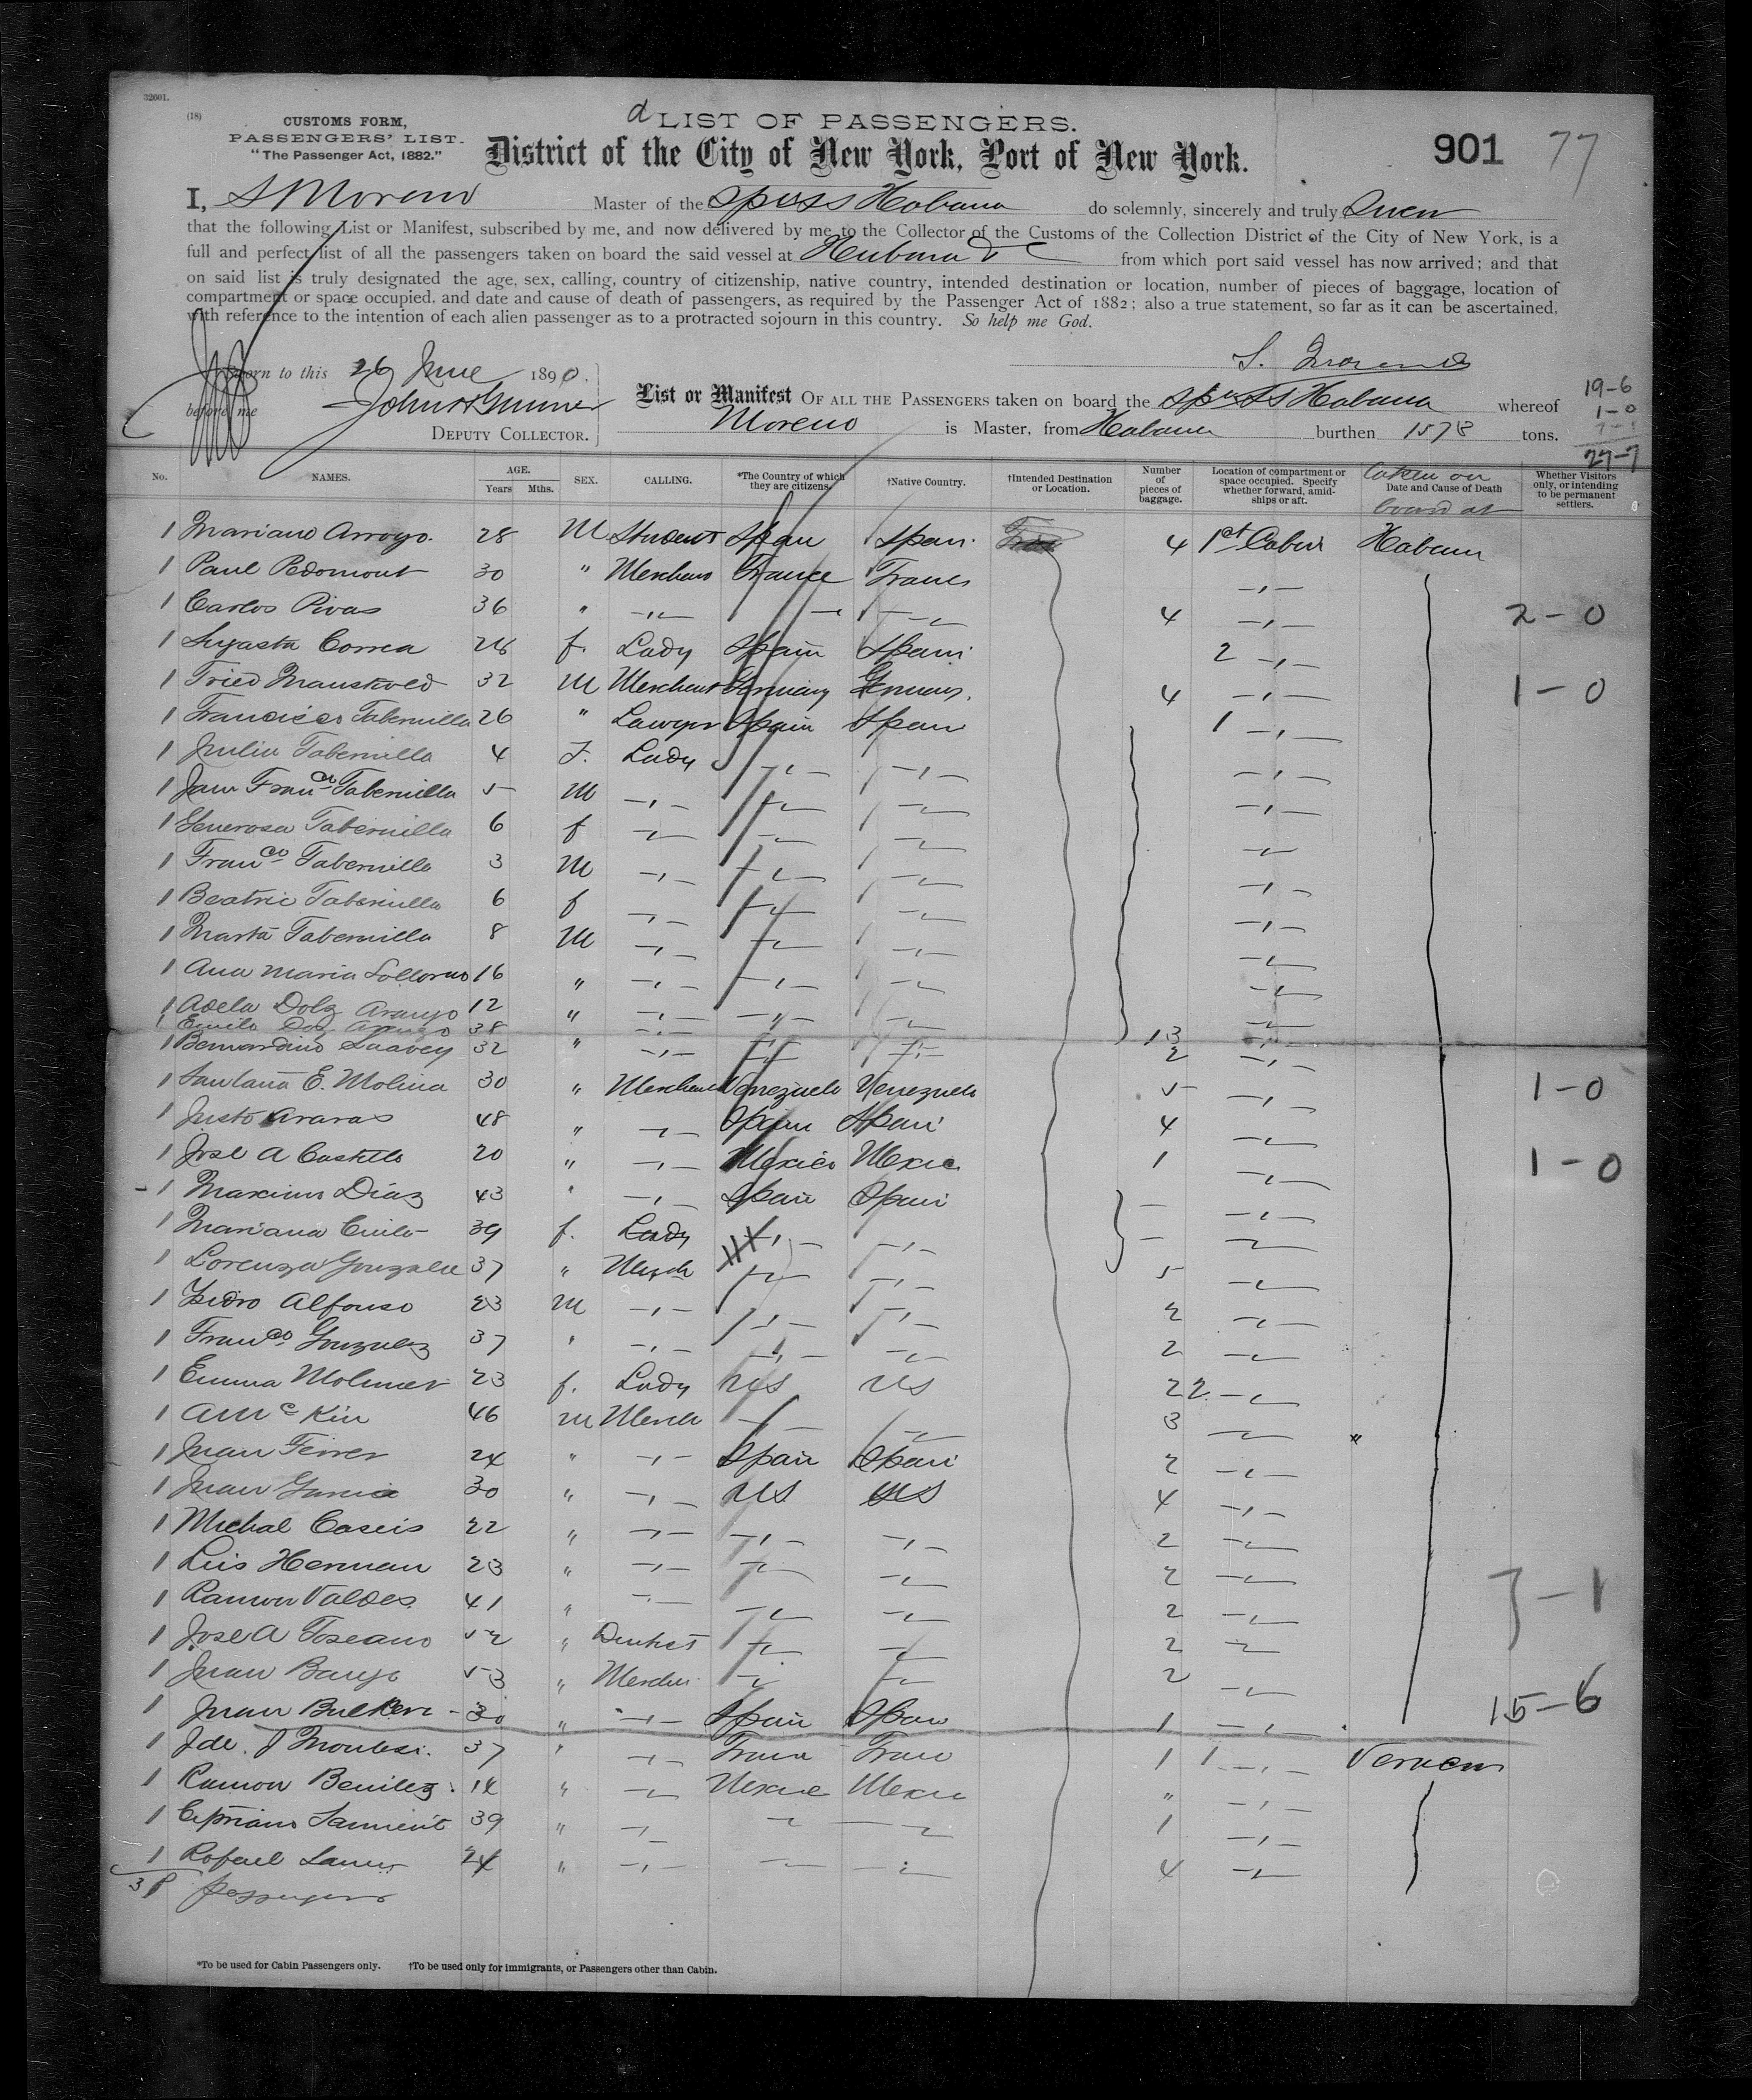 32601.
(18)
CUSTOMS FORM,
PASSENGERS' LIST.
"The Passenger Act, 1882."
a LIST OF PASSENGERS.
District of the City of New York, Port of New York.
901 77
I, S Moreno Master of the Sp SS Habana do solemnly, sincerely and truly Swear
that the following List or Manifest, subscribed by me, and now delivered by me to the Collector of the Customs of the Collection District of the City of New York, is a
full and perfect list of all the passengers taken on board the said vessel at Habana &c from which port said vessel has now arrived; and that
on said list is truly designated the age, sex, calling, country of citizenship, native country, intended destination or location, number of pieces of baggage, location of
compartment or space occupied, and date and cause of death of passengers, as required by the Passenger Act of 1882; also a true statement, so far as it can be ascertained,
with reference to the intention of each alien passenger as to a protracted sojourn in this country. So help me God.
S. Moreno
Sworn to this 26 June 1890.
before me
DEPUTY COLLECTOR.
19-6
1-0
27-7
List or Manifest OF ALL THE PASSENGERS taken on board the Sp SS Habana whereof
Moreno is Master, from Habana burthen 1578 tons.
No. NAMES. AGE. Years Mths. SEX. CALLING. *The Country of which they are citizens. †Native Country. †Intended Destination or Location. Number of pieces of baggage. Location of compartment or space occupied. Specify whether forward, amidships or aft. taken on board at Date and Cause of Death Whether Visitors only, or intending to be permanent settlers.
1 Mariano Arroyo. 28 M Student Spain Spain. 4 1st Cabin Habana
1 Paul 30 " Merchant France France
1 Carlos Rivas 36 " 4 2-0
1 Correa f. Lady Spain Spain 2
1 32 M Merchant Germany Germany. 4 1-0
1 Francisco Tabernilla 26 " Lawyer Spain Spain 1
1 Julia Tabernilla 4 F. Lady
1 Juan Franco Tabernilla 5 M
1 Generosa Tabernilla 6 f
1 Franco Tabernilla 3 M
1 Beatriz Tabernilla 6 f
1 Marta Tabernilla 8 M
1 Ana Maria 16 "
1 Adela Dolz Arango 12 "
1 Emilo Dolz Arango 38 13
1 Bernardino 32 " 2
1 Santana E. Molina 30 " Merchant Venezuela Venezuela 5 1-0
1 Justo 48 " Spain Spain 4
1 Jose A Castillo 20 " Mexico Mexico 1 1-0
1 Maximo Diaz 43 " Spain Spain
1 Mariana 39 f. Lady
1 Lorenza Gonzalez 37 " Merch 5
1 Isidro Alfonso 23 M 2
1 Franco Gonzalez 37 " 2
1 Emma 23 f. Lady US US 2 2
1 A Mc Kin 46 M Merch 3 "
1 Juan Ferrer 24 " Spain Spain 2
1 Juan 30 " US US 4
1 Michal 22 " 2
1 Luis Herman 23 " 2 7-1
1 Ramon Valdes 41 " 2
1 Jose A Toscano 52 " Dentist 2
1 Juan 53 " Merchn 2
1 Juan 30 " Spain Spain 1 15-6
1 J 37 " France France 1 1
1 Ramon Benitez. 14 " Mexico Mexico "
1 Cipriano 39 " 1
1 Rafael 24 " 4
38 passengers
*To be used for Cabin Passengers only. †To be used only for immigrants, or Passengers other than Cabin.